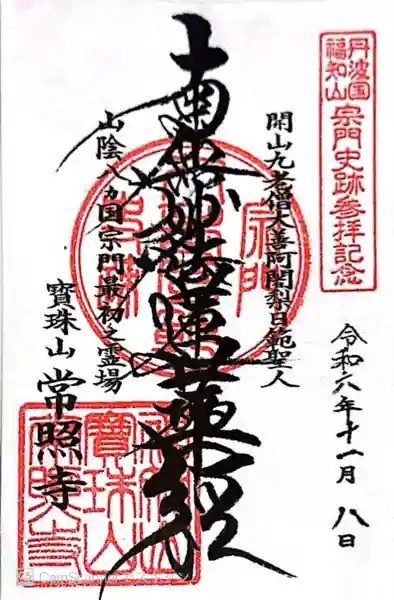 丹波国
福知山
宗門史跡参拝記念
令和六年十一月八日
開山九老僧大善阿闍梨日範聖人
南無妙法蓮華経
山陰八カ国宗門最初之霊場
寳珠山 常照寺
寳珠山
CamScanner